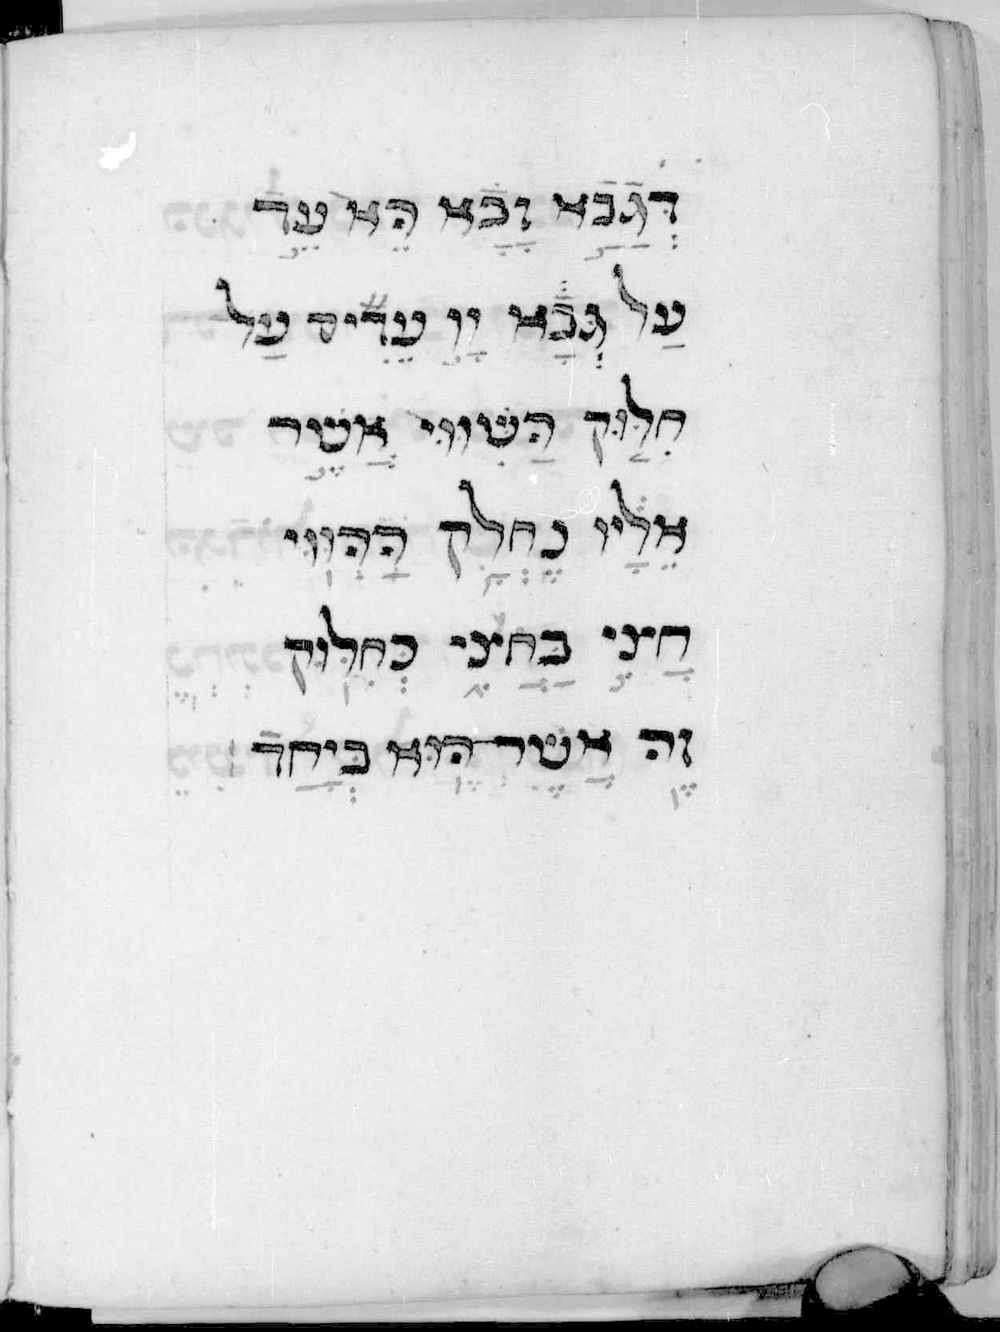 דְגַבַּא וַבָא הֵא עֵד
עַל גְבָּא יַוֵ עֵדִים עַל
חִלַוּק הַשִׁוּוּי אֲשֶׁר
אֵלָיו נֶחְלַק הַהִוּוּי
חֲצִי בַּחֲצִי כְּחִלּוּק
זֶה אֲשֶׁר הוּא בְּיַחַד